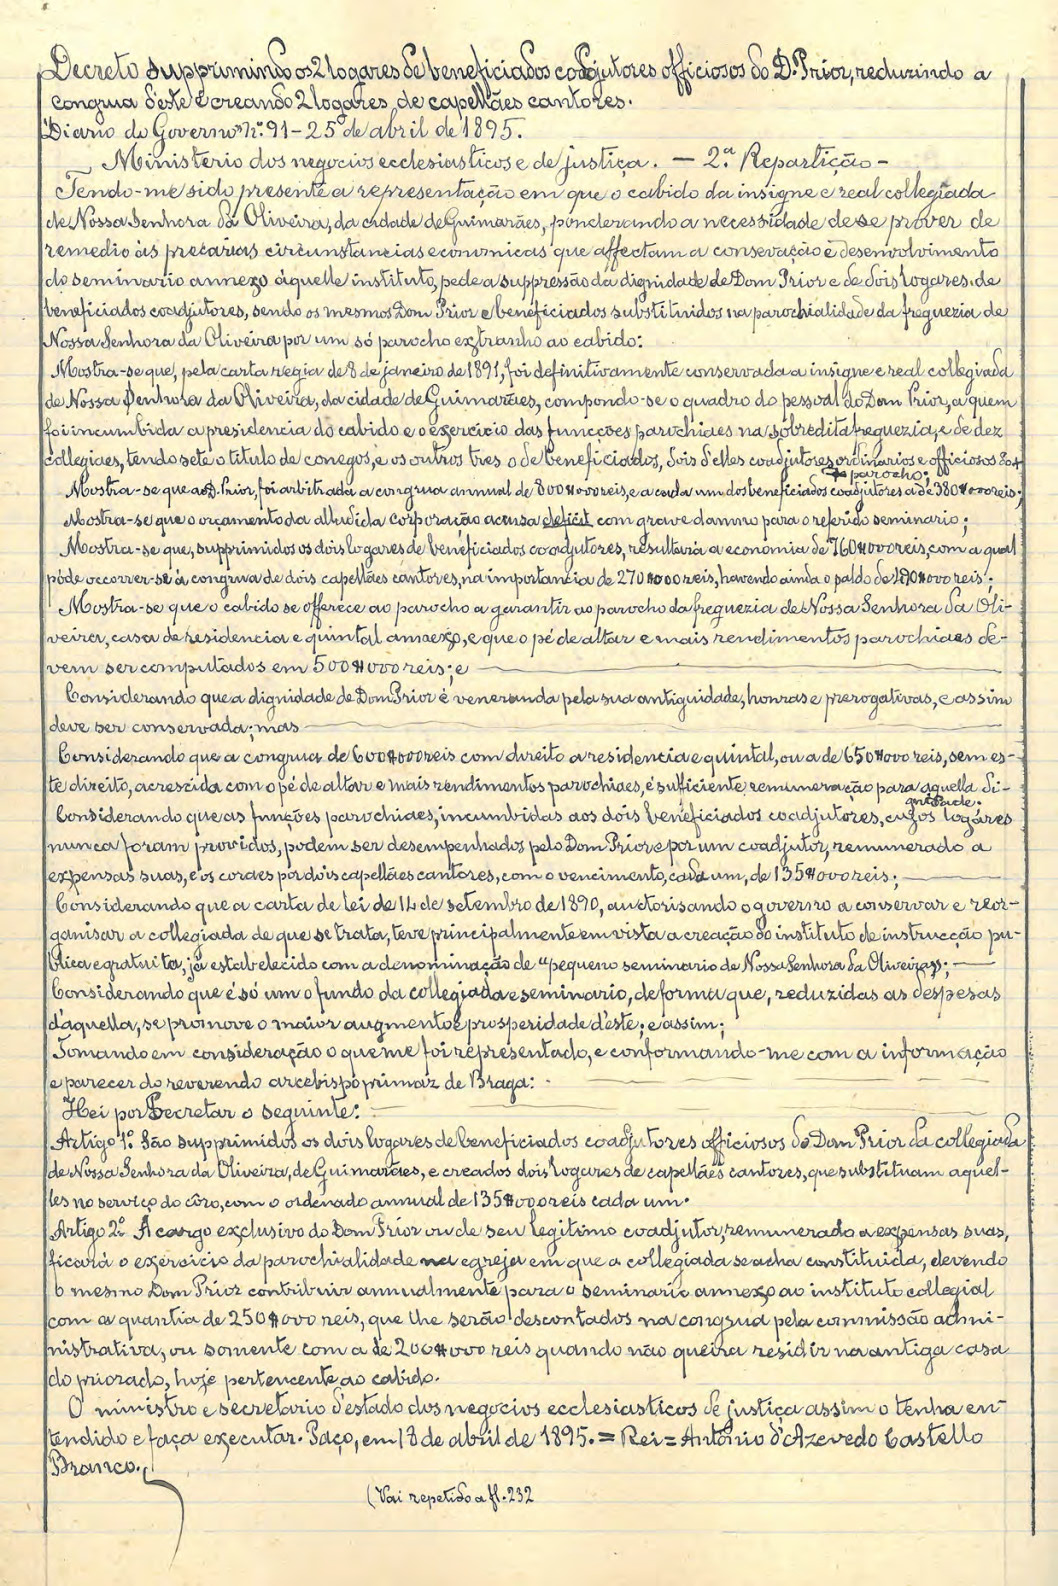 Decreto supprimindo os 2 logares de beneficiados coadjutores officiosos do D. Prior, reduzindo a
congrua d'este e creando 2 logares de capellães cantores.
Diario do Governo nº. 91 - 25 de abril de 1895.
Ministerio dos negocios ecclesiasticos e de justiça. — 2.ª Repartição -
Tendo-me sido presente a representação em que o cabido da insigne e real collegiada
de Nossa Senhora da Oliveira, da cidade de Guimarães, ponderando a necessidade de se prover de
remedio ás precarias circunstancias economicas que affectam a consevação e desenvolvimento
do seminario annexo áquelle instituto, pede a suppressão da dignidade de Dom Prior e de dois logares de
beneficiados coadjutores, sendo os mesmos Dom Prior e beneficiados substituidos na parochialidade da freguezia de
Nossa Senhora da Oliveira por um só parocho extranho ao cabido:
Mostra-se que, pela carta regia de 8 de janeiro de 1891, foi definitivamente conservada a insigne e real collegiada
de Nossa Senhora da Oliveira, da cidade de Guimarães, compondo-se o quadro do pessoal do Dom Prior, a quem
foi incumbida a presidencia do cabido e o exercicio das funcções parochiaes na sobredita freguezia, e de dez
collegiaes, tendo sete o titulo de conegos, e os outros tres o de beneficiados, dois d'elles coadjutores ordinarios e officiosos do
parocho;
Mostra-se que ao D. Prior, foi arbitrada a congrua annual de 800$000 reis, e a cada um dos beneficiados coadjutores a de 380$000 reis;
Mostra-se que o orçamento da alludida corporação acusa deficit com grave damno para o referido seminario;
Mostra-se que, supprimidos os dois logares de beneficiados coadjutores, resultará a economia de 760$000 reis, com a qual
póde occorrer-se á congrua de dois capellães cantores, na importancia de 270$000 reis, havendo ainda o saldo de 490$000 reis;
Mostra-se que o cabido se offerece ao parocho a garantir ao parocho da freguezia de Nossa Senhora da Oli-
veira, casa de residencia e quintal annexo, e que o pé de altar e mais rendimentos parochiaes de-
vem ser computados em 500$000 reis; e
Considerando que a dignidade de Dom Prior é veneranda pela sua antiguidade, honras e prerogativas, e assim
deve ser conservada; mas
Considerando que a congrua de 600$000 reis com direito a residencia e quintal, ou a de 650$000 reis, sem es-
te direito, acrescida com o pé de altar e mais rendimentos parochiaes, é sufficiente remuneração para aquella di-
gnidade.
Considerando que as funções parochiaes, incumbidas aos dois beneficiados coadjutores, cujos logares
nunca foram providos, podem ser desempenhados pelo Dom Prior e por um coadjutor, remunerado a
expensas suas, e os coraes por dois capellães cantores, com o vencimento, cada um, de 135$000 reis;
Considerando que a carta de lei de 14 de setembro de 1890, auctorisando o governo a conservar e reor-
ganisar a collegiada de que se trata, teve principalmente em vista a creação do instituto de instrucção pu-
blica e gratuita, já estabelecido com a denominação de "pequeno seminario de Nossa Senhora da Oliveira";
Considerando que é só um o fundo da collegiada e seminario, de forma que, reduzidas as despesas
d'aquella, se promove o maior augmento e prosperidade d'este; e assim;
Tomando em consideração o que me foi representado, e conformando-me com a informação
e parecer do reverendo arcebispo primaz de Braga:
Hei por decretar o seguinte:
Artigo 1º. São supprimidos os dois logares de beneficiados coadjutores officiosos do Dom Prior da collegiada
de Nossa Senhora da Oliveira, de Guimarães, e creados dois logares de capellães cantores, que substituam aquel-
les no serviço do côro, com o ordenado annual de 135$000 reis cada um.
Artigo 2º. A cargo exclusivo do Dom Prior ou de seu legitimo coadjutor, remunerado a expensas suas,
ficará o exercicio da parochialidade na egreja em que a collegiada se acha constituida, devendo
o mesmo Dom Prior contribuir annualmente para o seminario annexo ao instituto collegial
com a quantia de 250$000 reis, que lhe serão descontados na congrua pela commissão admi-
nistrativa, ou somente com a de 200$000 reis quando não queira residir na antiga casa
do priorado, hoje pertencente ao cabido.
O ministro e secretario d'estado dos negocios ecclesiasticos de justiça assim o tenha en-
tendido e faça executar. Paço, em 18 de abril de 1895. = Rei = Antonio d'Azevedo Castello
Branco.
(Vai repetido a fl. 232